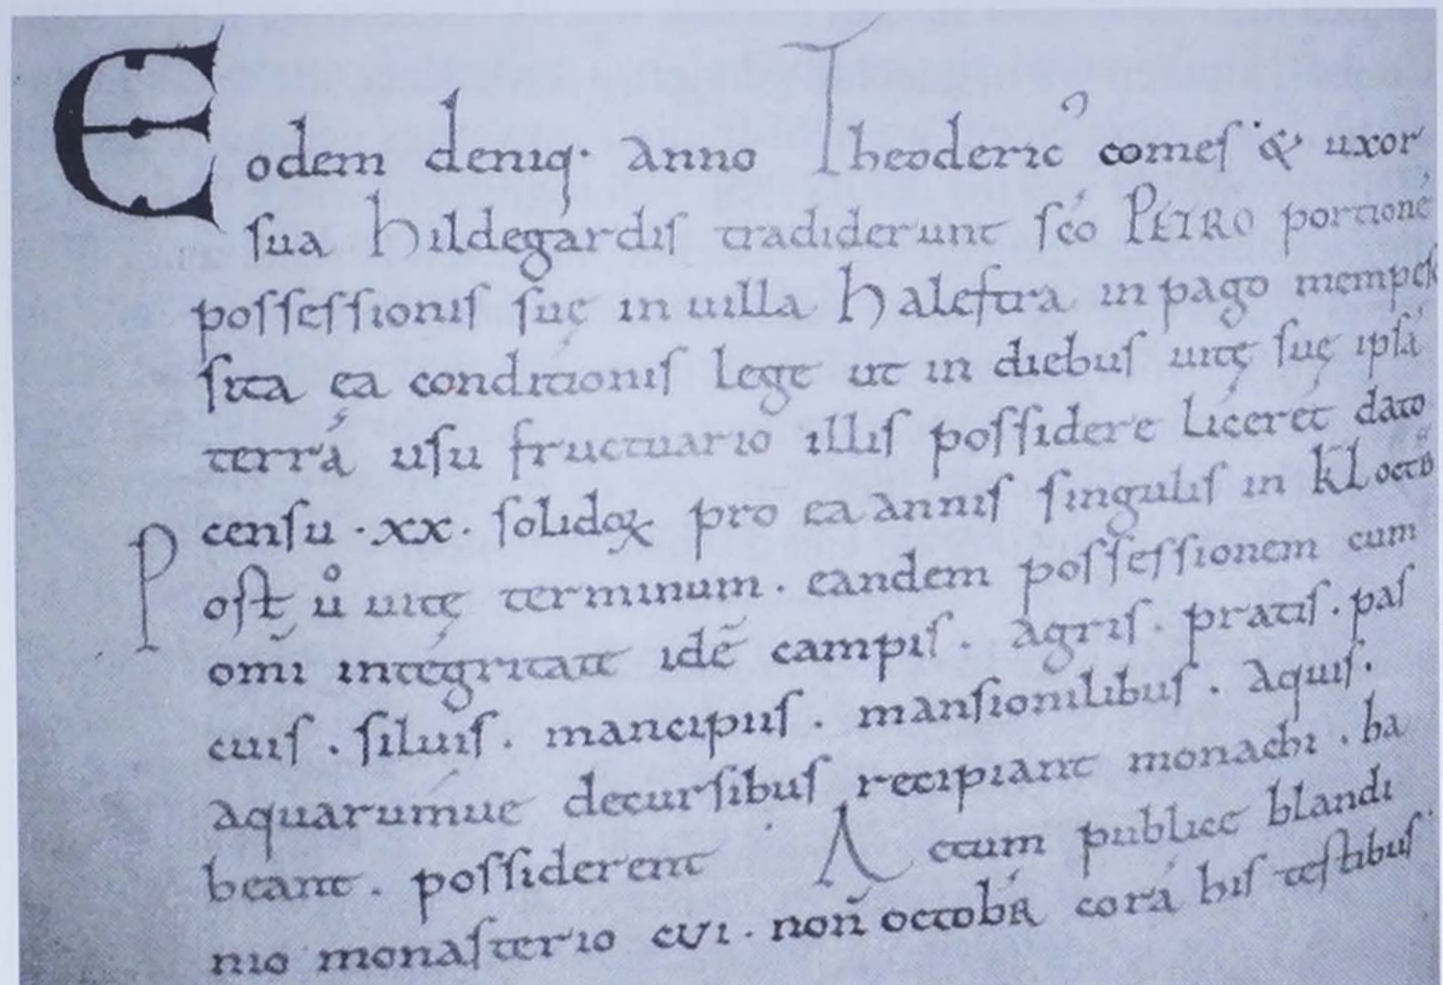 Eodem deniq· anno Theoderic᾽ comes & uxor
sua hildegardis tradiderunt sc̄o PETRO portionē
possessionis suę in uilla halestra in pago mempesc
sita ea conditionis lege ut in diebus uitę suę ipsā
terrā usu fructuario illis possidere liceret dato
censu ·xx· solidoꝝ pro ea annis singulis in kl octb
Post ů uitę terminum · eandem possessionem cum
om̄i integritate idē campis · agris · pratis · pas
cuis · siluis · mancipiis · mansionilibus · aquis ·
aquarumue decursibus recipiant monachi · ha
beant · possiderent Actum publice blandi
nio monasterio · non̄ octobr̄ corā his testibus